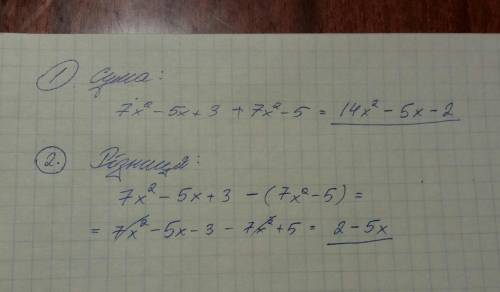 1) Сума:
7x² - 5x + 3 + 7x² - 5 = 14x² - 5x - 2
2. Різниця:
7x² - 5x + 3 - (7x² - 5) =
= 7x² - 5x - 3 - 7x² + 5 = 2 - 5x